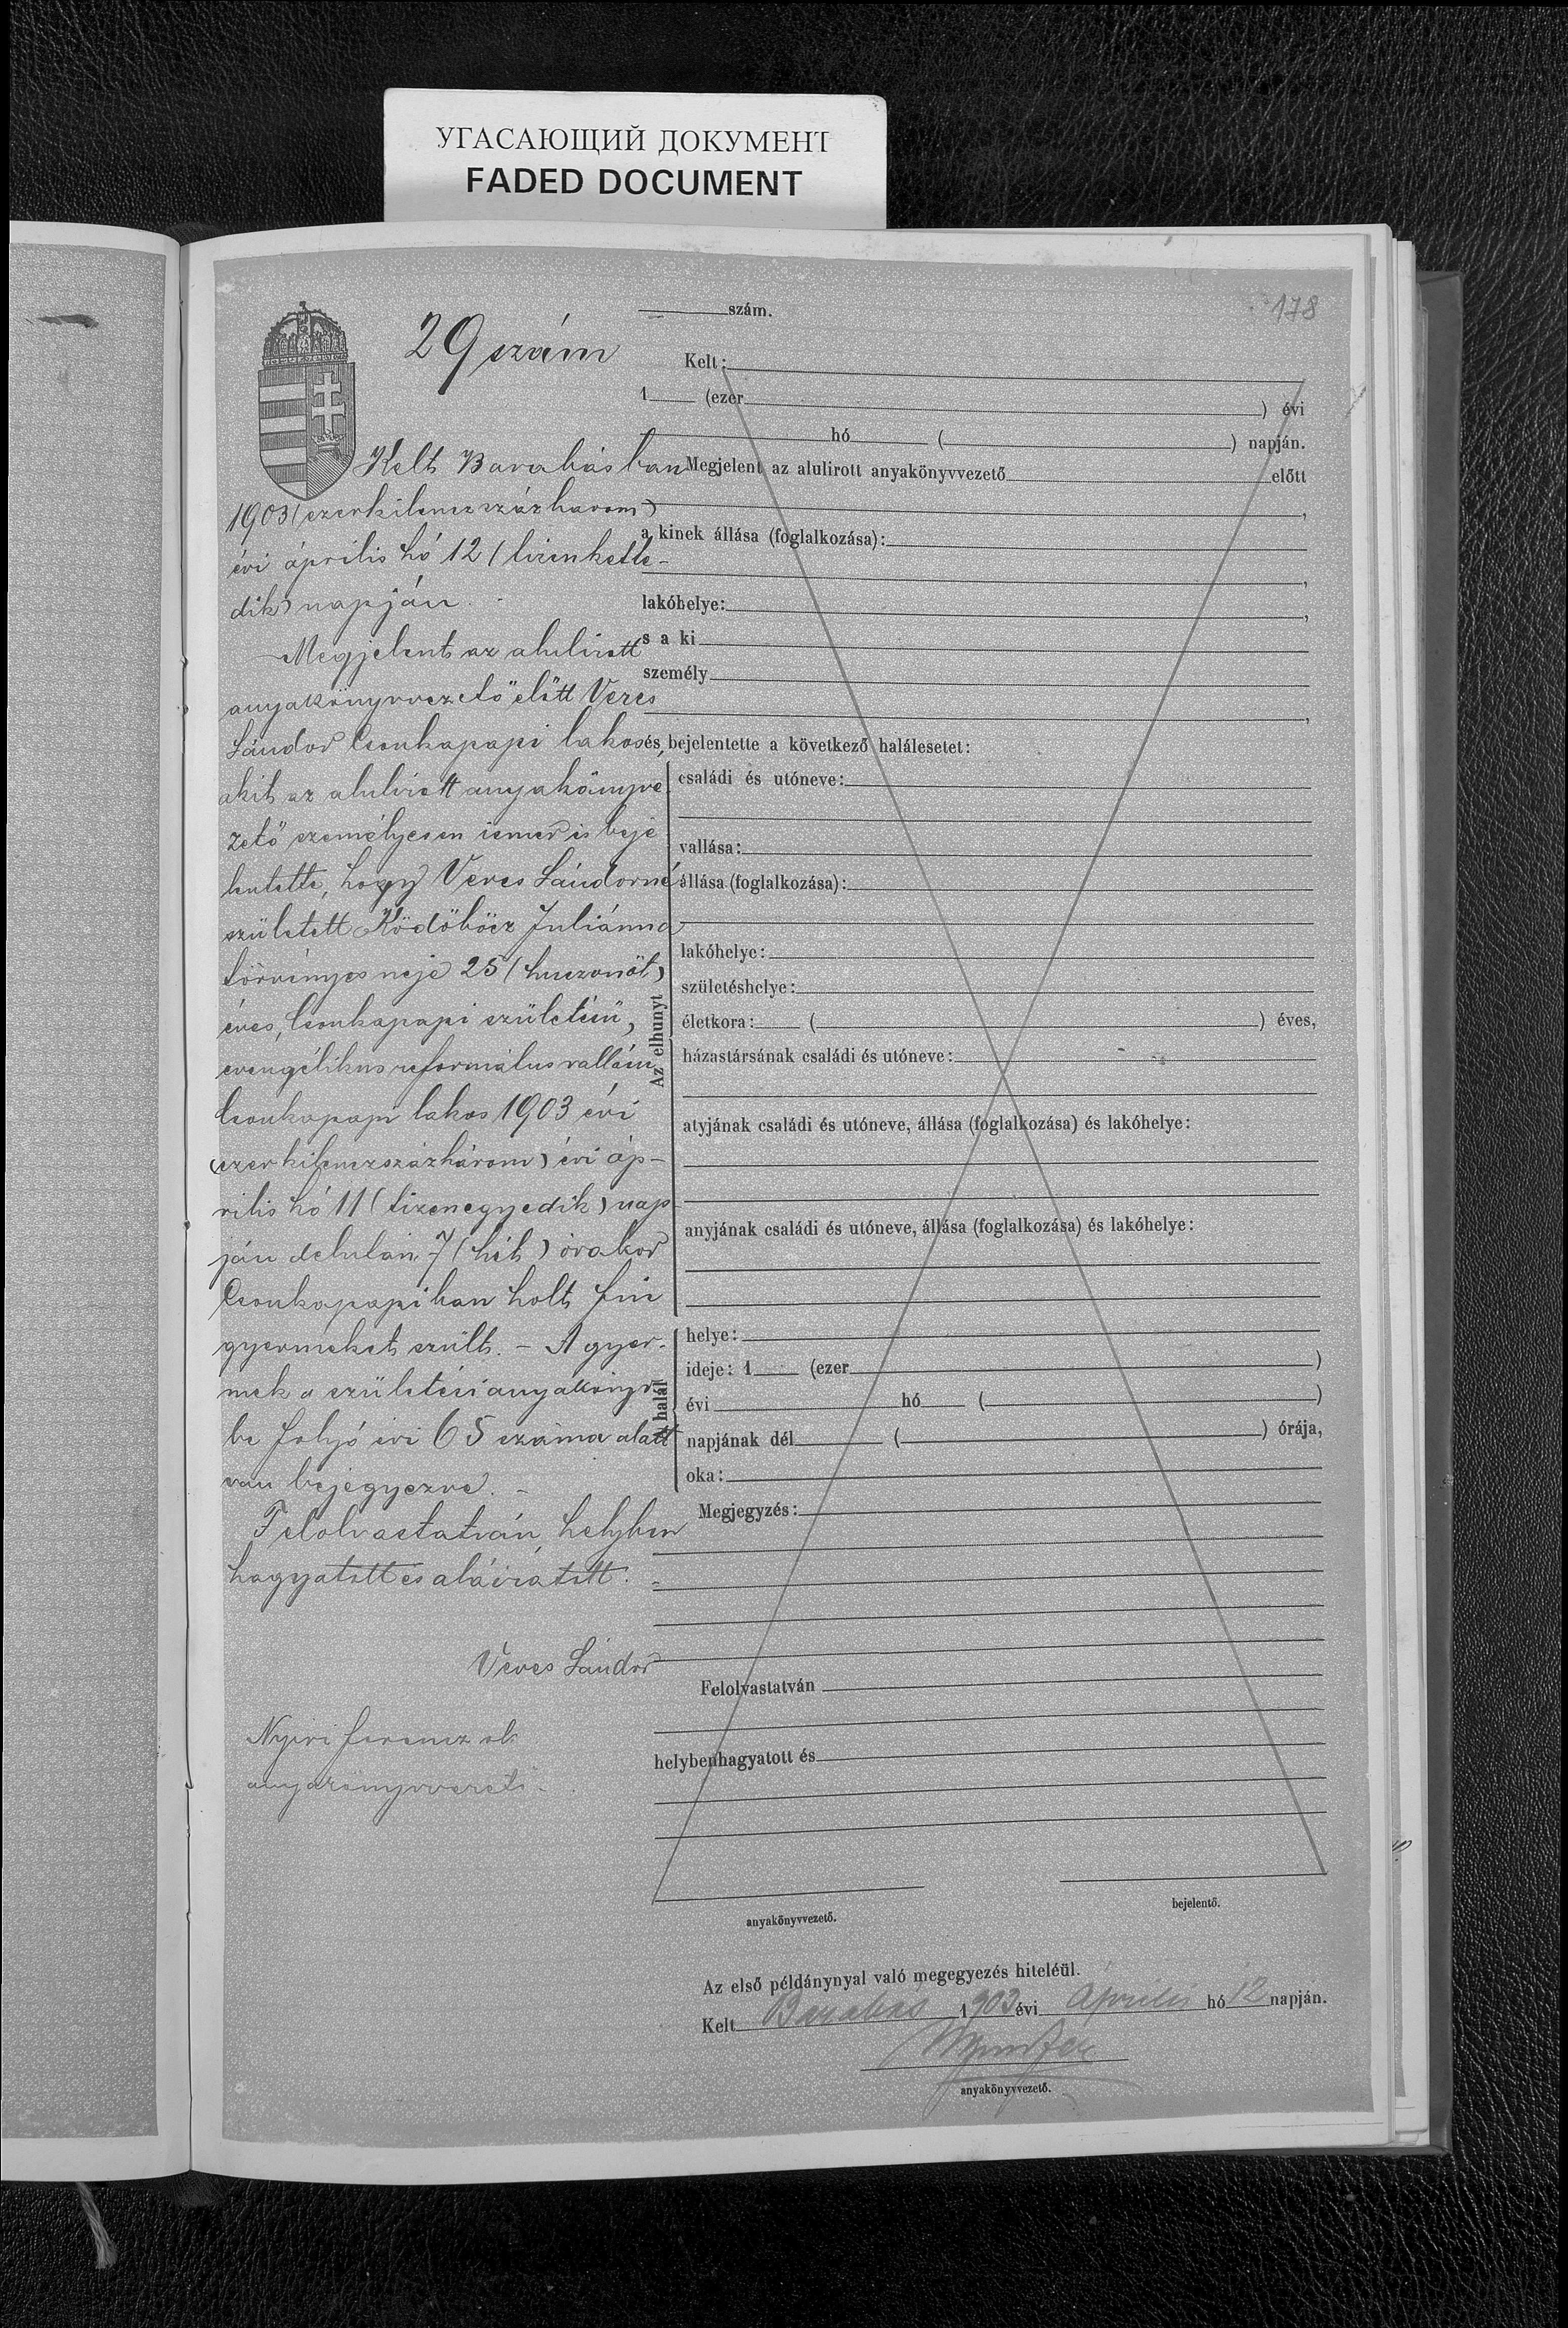 УГАСАЮЩИЙ ДОКУМЕНТ
FADED DOCUMENT
178
29 szám
Kelt Barabásban
1903 (ezerkilenczszázharom)
évi április hó 12 (tizenkette-
dik) napján.
Megjelent az alulirott
anyakönyvvezető előtt Veres
Sándor Csonkapapi lakos,
akit az alulirott anyakönyvve
zető személyesen ismer is beje
lentette, hogy Veres Sándorné
született Ködöböcz Juliánna
törvényes neje 25 (huszonöt)
éves, Csonkapapi születésü,
evengélikus református vallásu
Csonkapapi lakos 1903 évi
(ezerkilenczszázhárom) évi áp-
rilis hó 11 (tizenegyedik) nap
ján délután 7 (hét) órakor
Csonkapapiban holt fiu
gyermeket szült. - A gyer-
mek a születési anyakönyv
be folyó évi 65 száma alatt
van bejegyezve. -
Felolvastatván, helyben
hagyatott és aláiratott. -
Veres Sándor
Nyiri Ferencz
anyakönyvvezető
szám.
Kelt:
1 (ezer ) évi
hó ( ) napján.
Megjelent az alulirott anyakönyvvezető előtt
,
a kinek állása (foglalkozása):
,
lakóhelye: ,
s a ki
személy
,
és bejelentette a következő halálesetet:
Az elhunyt
családi és utóneve:
vallása:
állása (foglalkozása):
lakóhelye:
születéshelye:
életkora: ( ) éves,
házastársának családi és utóneve:
atyjának családi és utóneve, állása (foglalkozása) és lakóhelye:
anyjának családi és utóneve, állása (foglalkozása) és lakóhelye:
A halál
helye:
ideje: 1 (ezer )
évi hó ( )
napjának dél ( ) órája,
oka:
Megjegyzés:
Felolvastatván
helybenhagyatott és
anyakönyvvezető.
bejelentő.
Az első példánynyal való megegyezés hiteléül.
Kelt Barabás 1903 évi április hó 12 napján.
anyakönyvvezető.